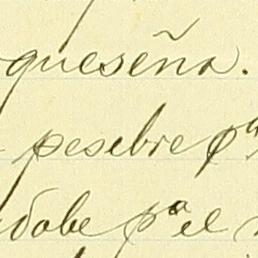 queseña.
pesebre pª
dobe pª el